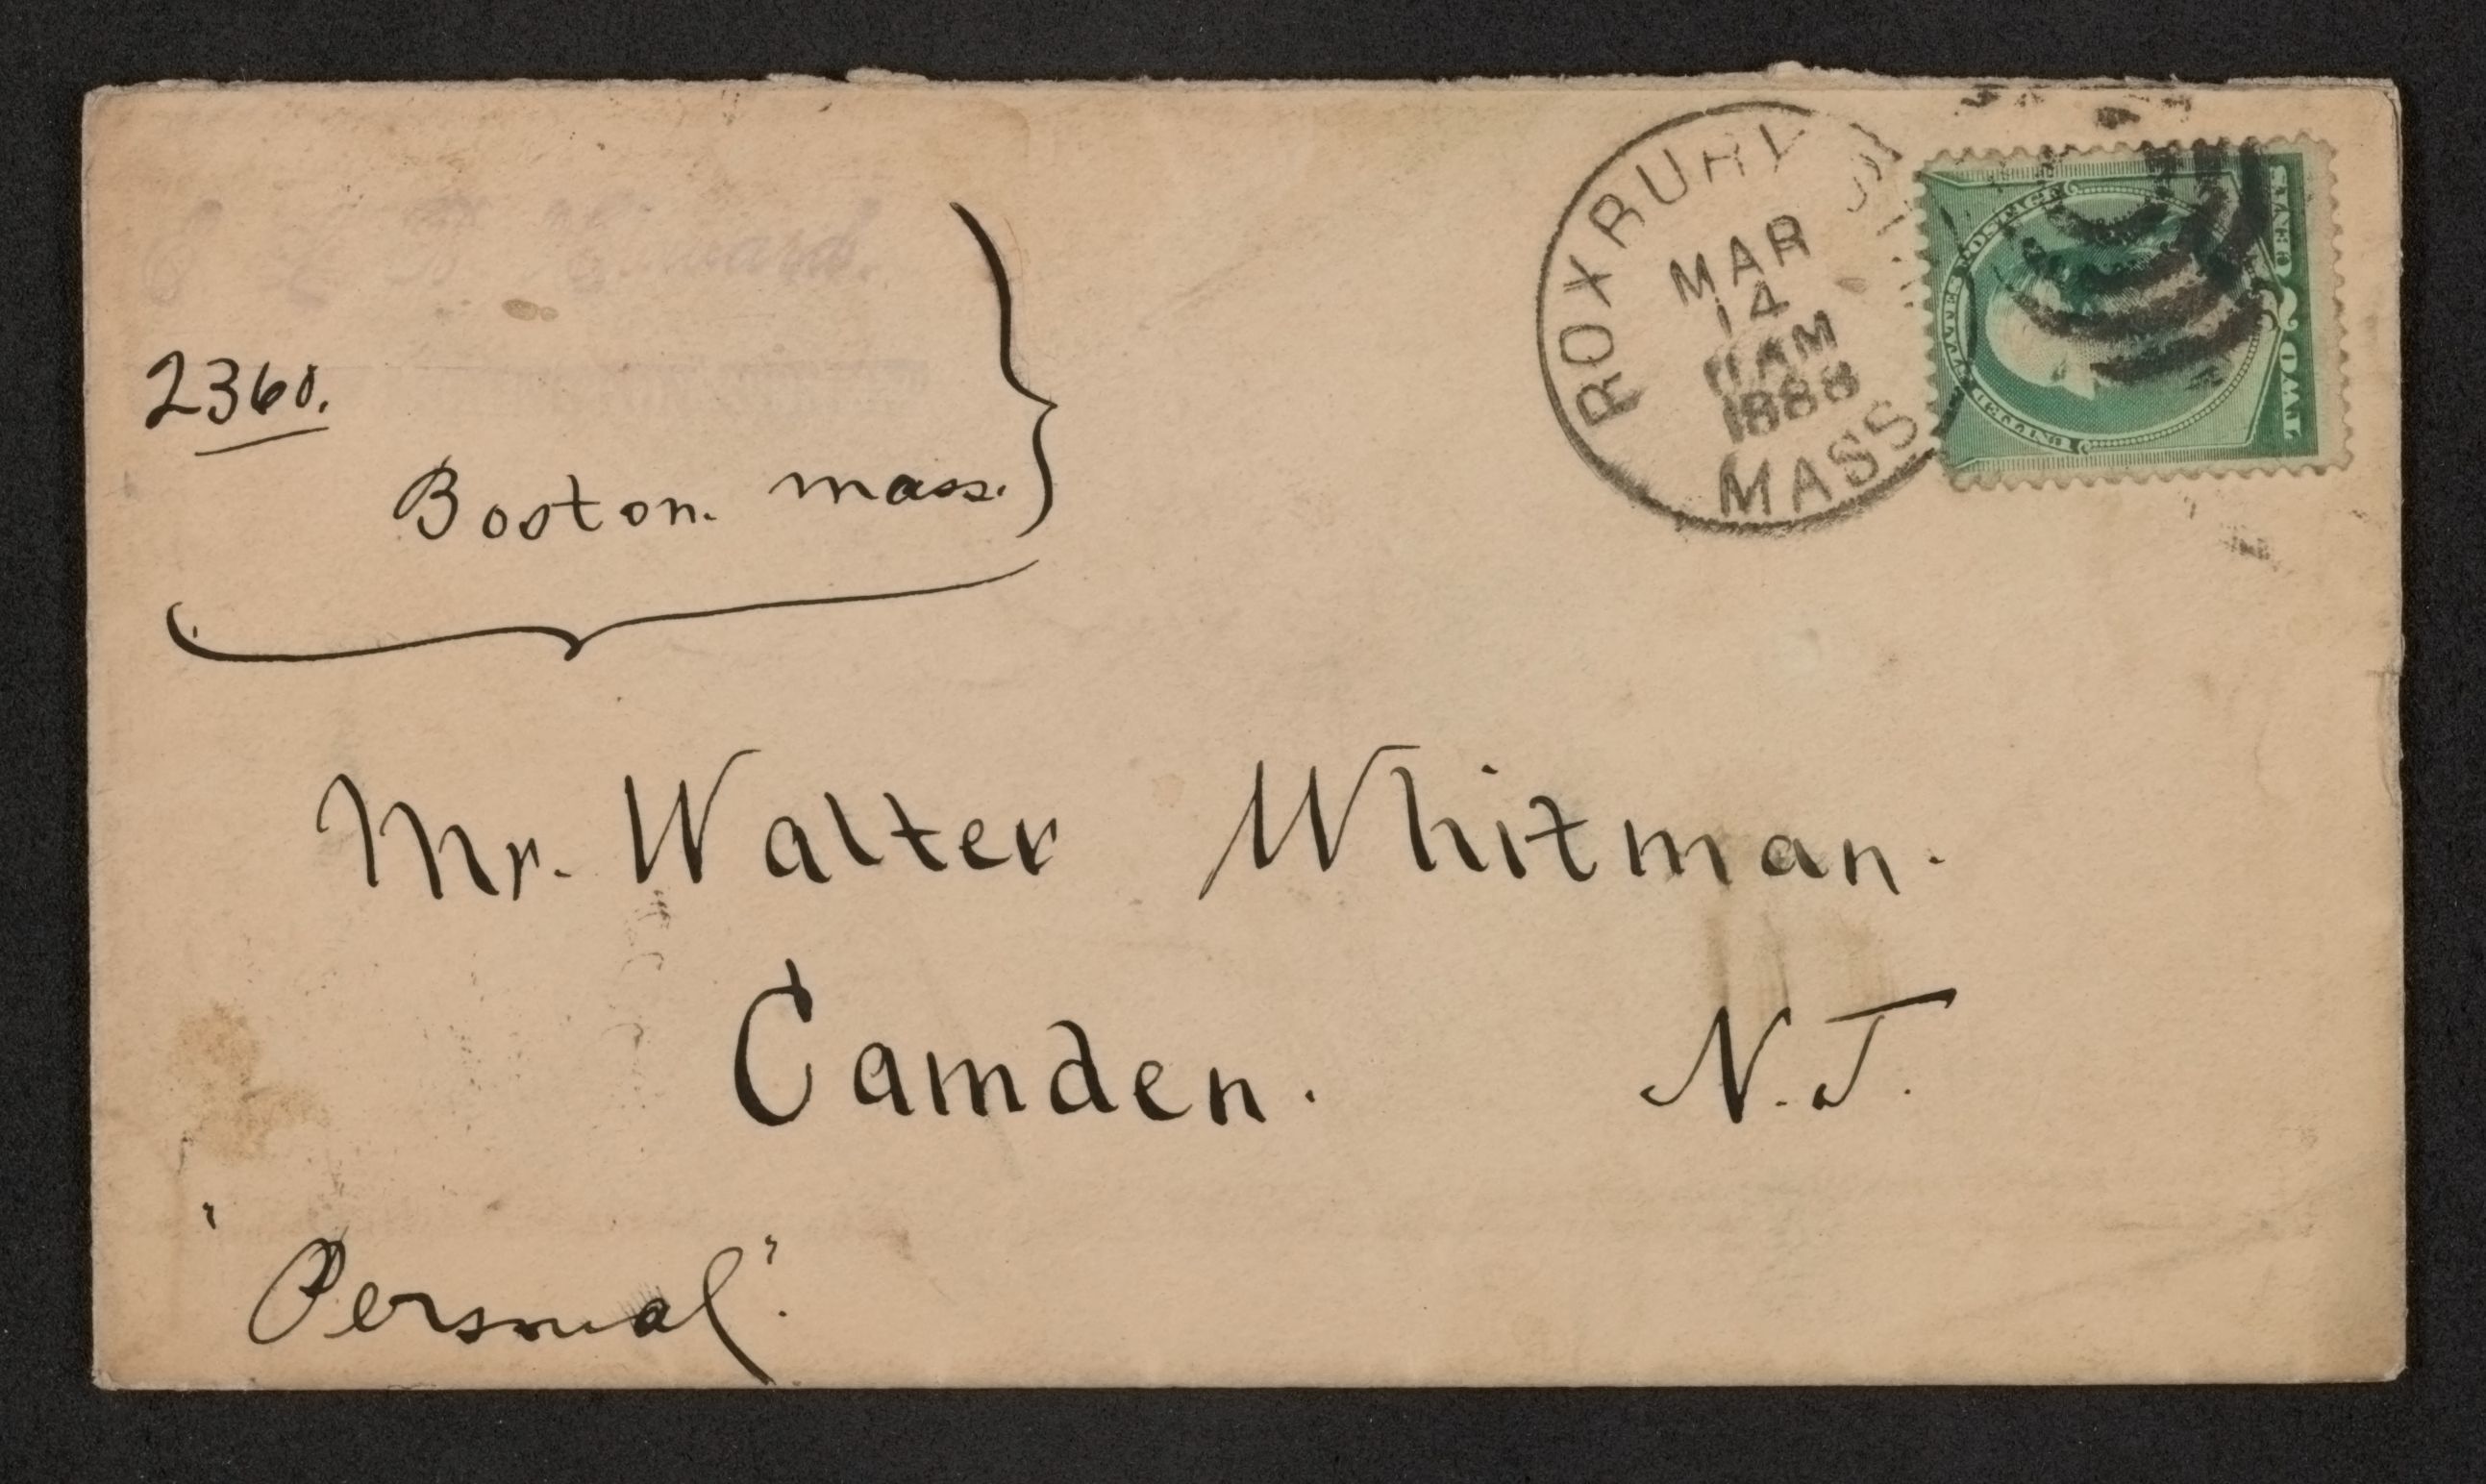 2360.
Boston. mass.
ROXBURY STA.
MAR
14
11 AM
1888
MASS
UNITED STATES POSTAGE
2
TWO CENTS
Mr. Walter Whitman.
Camden. N.J.
"Personal".